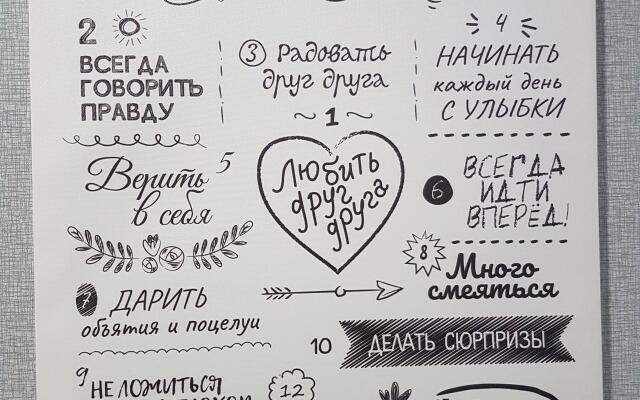 2
ВСЕГДА
ГОВОРИТЬ
ПРАВДУ
3 Радовать
друг друга
4
НАЧИНАТЬ
каждый день
С УЛЫБКИ
1
Любить
друг
друга
5
Верить
в себя
6
ВСЕГДА
ИДТИ
ВПЕРЁД!
7 ДАРИТЬ
объятия и поцелуи
8
Много
смеяться
10 ДЕЛАТЬ СЮРПРИЗЫ
9
НЕ ЛОЖИТЬСЯ
12